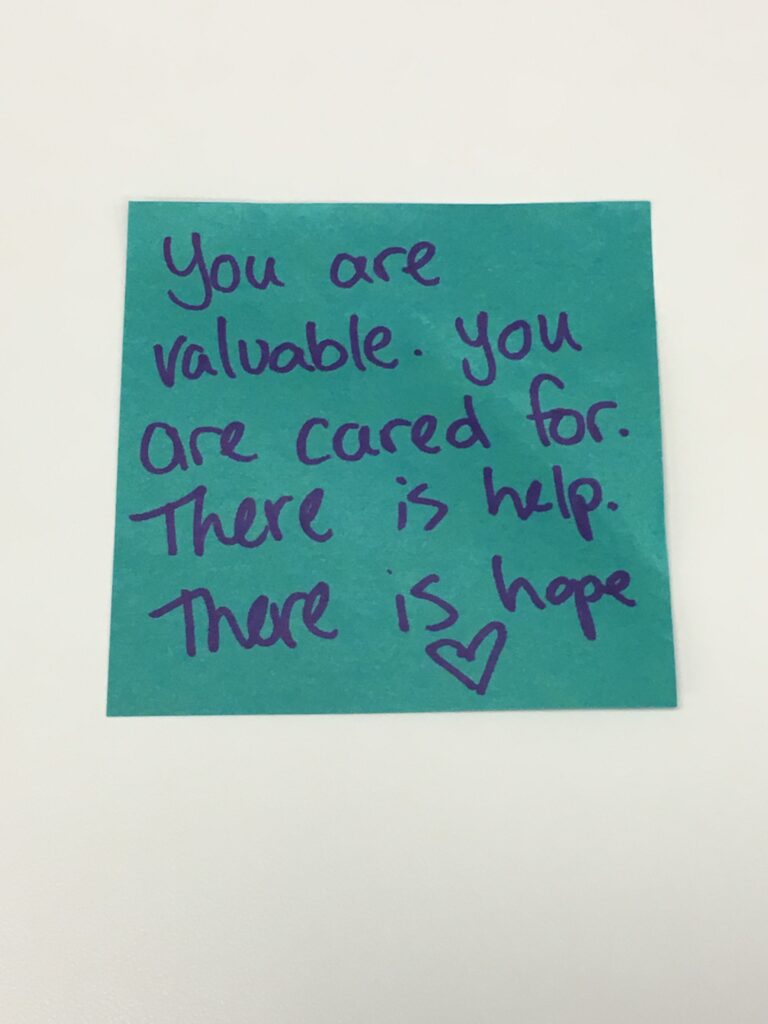 You are
valuable. You
are cared for.
There is help.
There is hope